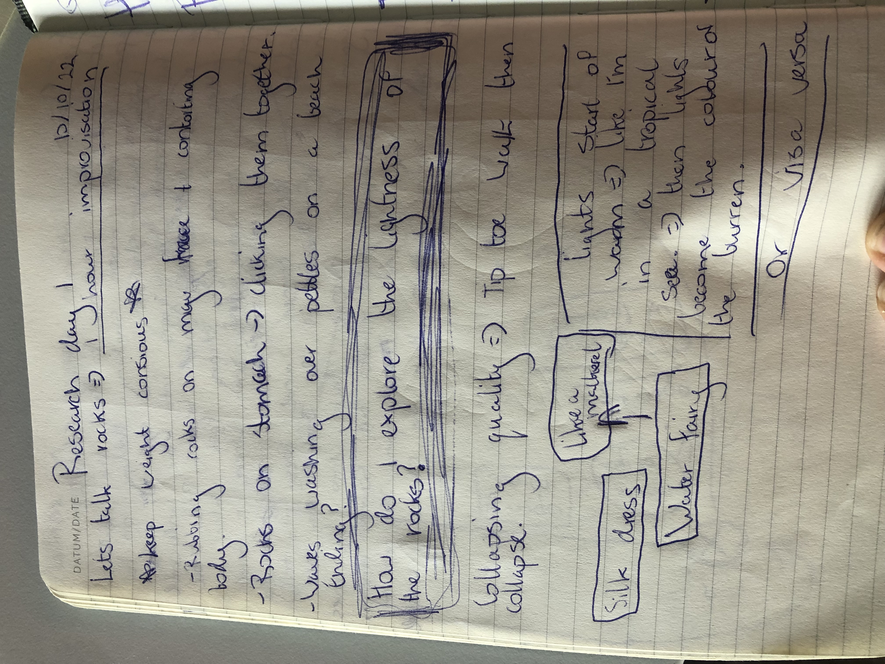 DATUM/DATE Research day 1 12/10/22
Lets talk rocks => 1 hour improvisation
keep weight consious
- Rubbing rocks on my face + contorting
body.
- Rocks on stomach -> clicking them together.
- Waves washing over pebbles on a beach
Ending?
How do I explore the lightness of
the rocks?
Collapsing quality => Tip toe walk then
collapse.
Silk dress
Like a
Water fairy
Lights start of
warm => like I'm
in a tropical
=> then lights
become the colour of
the burren.
Or visa versa